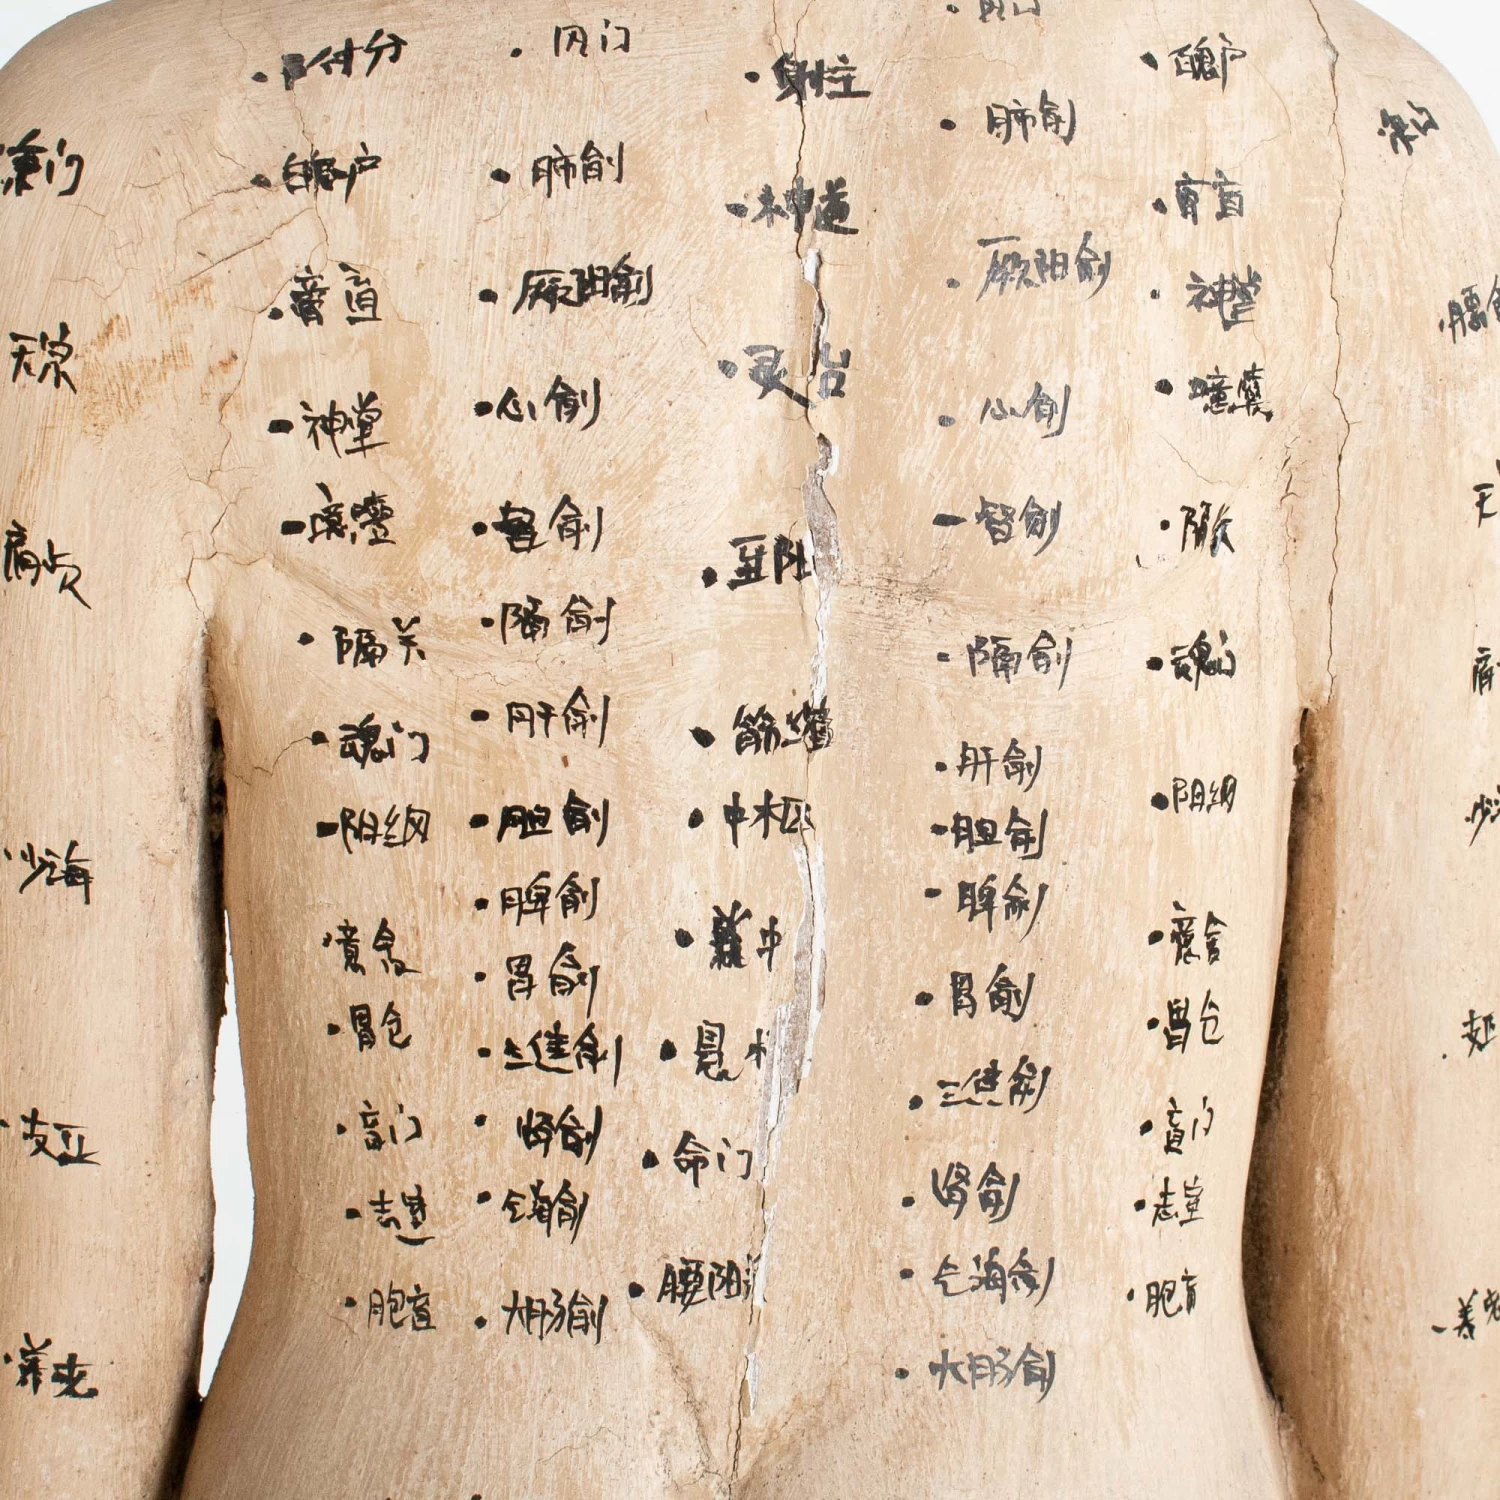 付分
风门
身柱
魄户
肺俞
魄户
肺俞
神道
膏肓
膏肓
厥阴俞
厥阴俞
神堂
天泉
灵台
神堂
心俞
心俞
譩譆
督俞
肩贞
至阳
膈关
膈俞
膈俞
魂门
魂门
肝俞
筋缩
肝俞
阳纲
阳纲
胆俞
中枢
胆俞
少海
脾俞
脾俞
意舍
脊中
意舍
胃仓
胃俞
胃俞
胃仓
三焦俞
悬枢
三焦俞
支正
肓门
肾俞
命门
肾俞
肓门
志室
气海俞
志室
气海俞
胞肓
大肠俞
腰阳
胞肓
养老
大肠俞